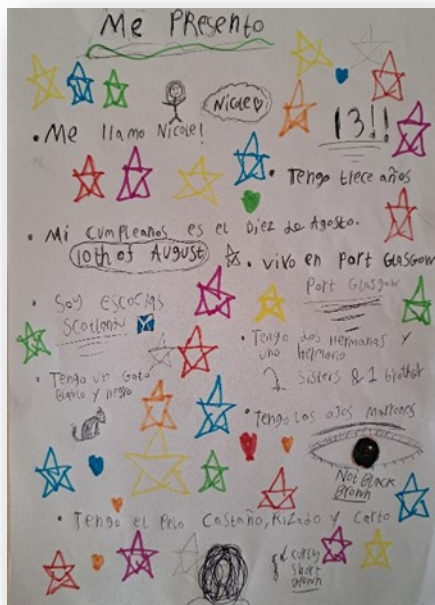 Me Presento
Nicole
• Me llamo Nicole!
13!!
• Tengo trece años
• Mi cumpleanos es el Diez de Agosto.
10th of August
• vivo en Port Glasgow
Port Glasgow
• Soy escocias
Scotland
• Tengo dos hermanas y
uno hermano
2 sisters & 1 brother
• Tengo un gato
blanco y negro
• Tengo los ojos marrones
Not Black
Brown
• Tengo el pelo castaño, Rizado y Carto
curly
short
brown